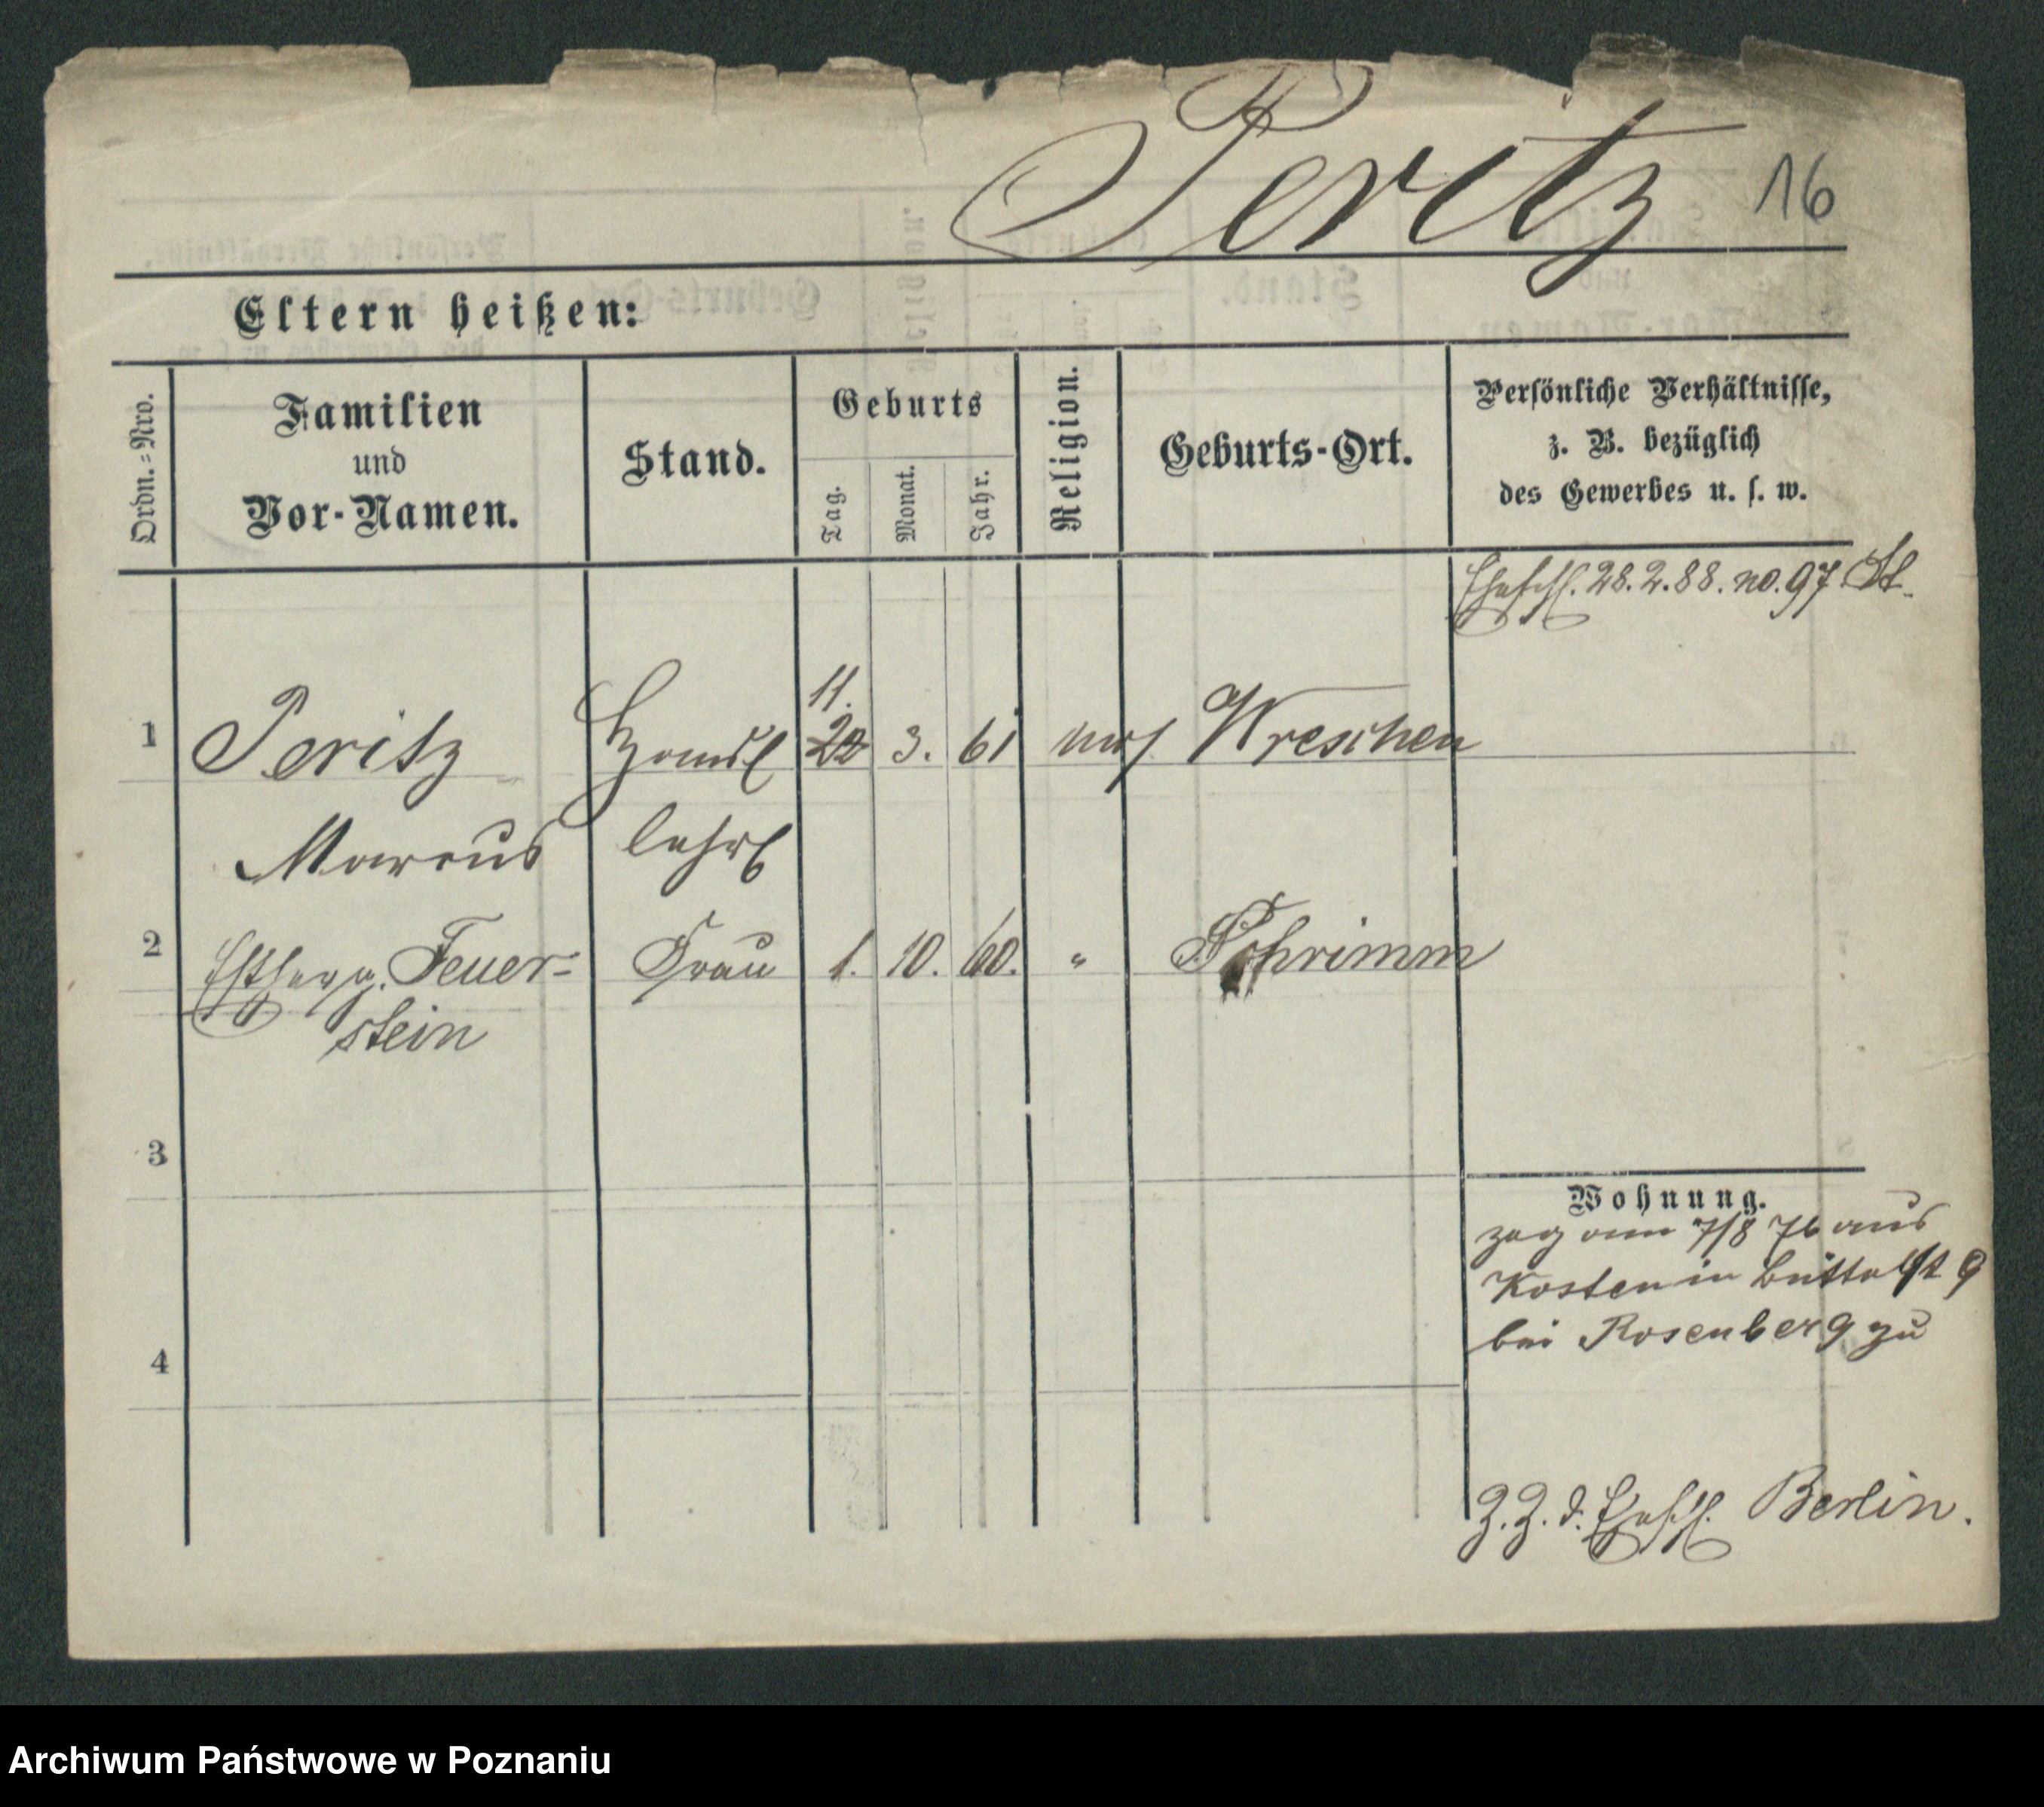 Peritz 16
Eltern heißen:
Ordn.=Nro.
Familien
und
Vor-Namen.
Stand.
Geburts
Tag.
Monat.
Jahr.
Religion.
Geburts-Ort.
Persönliche Verhältnisse,
z. B. bezüglich
des Gewerbes u. s. w.
Eheschl. 28.2.88. no. 97 St.
11.
1 Peritz Handl 22 3. 61 mos Wreschen
Marcus lehrl
2 Esther g. Feuer- Frau 1. 10. 60. " Schrimm
stein
3
Wohnung.
zog am 7/8 76 aus
Kosten in Büttelst 9
bei Rosenberg zu
4
Z. Z. d. Eheschl. Berlin.
Archiwum Państwowe w Poznaniu